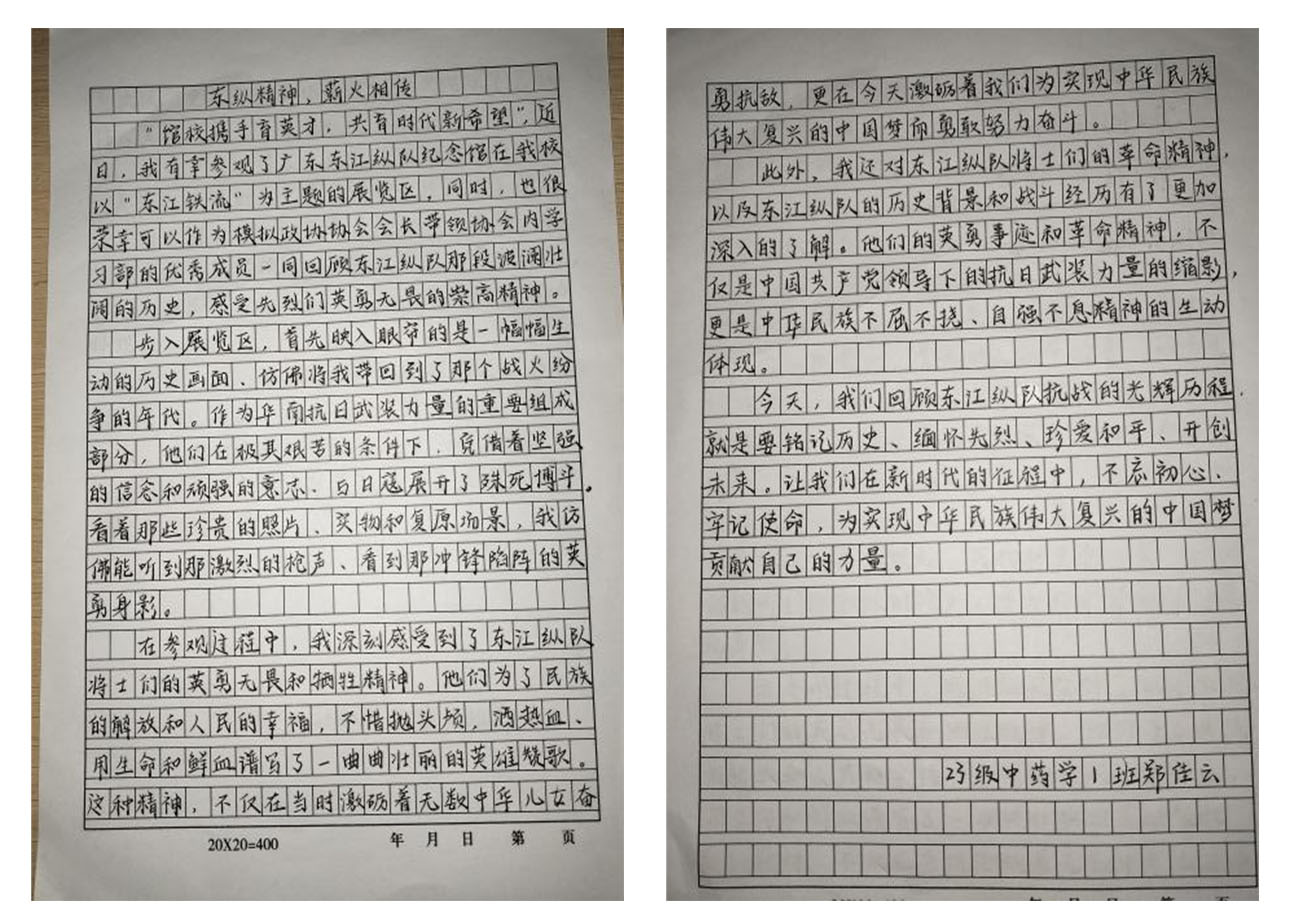 东纵精神，薪火相传
“馆校携手育英才，共育时代新希望”，近
日，我有幸参观了广东东江纵队纪念馆在我校
以“东江铁流”为主题的展览区，同时，也很
荣幸可以作为模拟政协协会会长带领协会内学
习部的优秀成员一同回顾东江纵队那段波澜壮
阔的历史，感受先烈们英勇无畏的崇高精神。
步入展览区，首先映入眼帘的是一幅幅生
动的历史画面、仿佛将我带回到了那个战火纷
争的年代。作为华南抗日武装力量的重要组成
部分，他们在极其艰苦的条件下，凭借着坚强
的信念和顽强的意志、与日寇展开了殊死搏斗。
看着那些珍贵的照片、实物和复原场景，我仿
佛能听到那激烈的枪声、看到那冲锋陷阵的英
勇身影。
在参观过程中，我深刻感受到了东江纵队
将士们的英勇无畏和牺牲精神。他们为了民族
的解放和人民的幸福，不惜抛头颅，洒热血、
用生命和鲜血谱写了一曲曲壮丽的英雄赞歌。
这种精神，不仅在当时激励着无数中华儿女奋
20X20=400 年 月 日 第 页
勇抗敌，更在今天激励着我们为实现中华民族
伟大复兴的中国梦而勇敢努力奋斗。
此外，我还对东江纵队将士们的革命精神，
以及东江纵队的历史背景和战斗经历有了更加
深入的了解。他们的英勇事迹和革命精神，不
仅是中国共产党领导下的抗日武装力量的缩影，
更是中华民族不屈不挠、自强不息精神的生动
体现。
今天，我们回顾东江纵队抗战的光辉历程，
就是要铭记历史、缅怀先烈、珍爱和平、开创
未来。让我们在新时代的征程中，不忘初心、
牢记使命，为实现中华民族伟大复兴的中国梦
贡献自己的力量。
23级中药学1班郑佳云